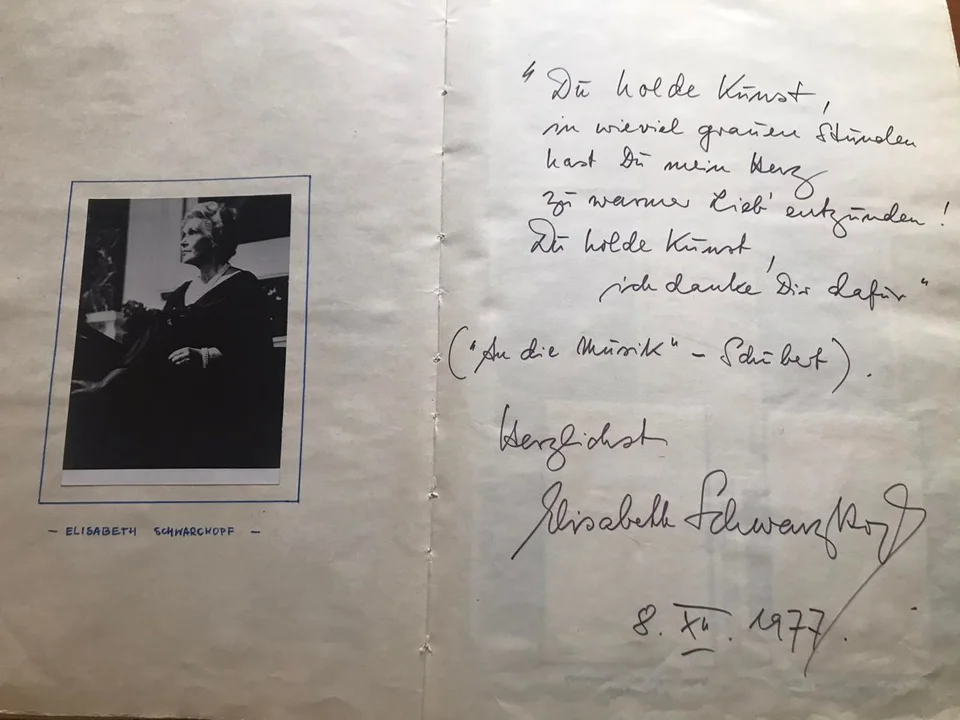 - ELISABETH SCHWARCHOPF -
"Du holde Kunst,
in wieviel grauen Stunden
hast Du mein Herz
zu warmer Lieb' entzunden!
Du holde Kunst,
ich danke Dir dafür"
("An die Musik" - Schubert).
Herzlichst
Elisabeth Schwarzkopf
8. XII. 1977.